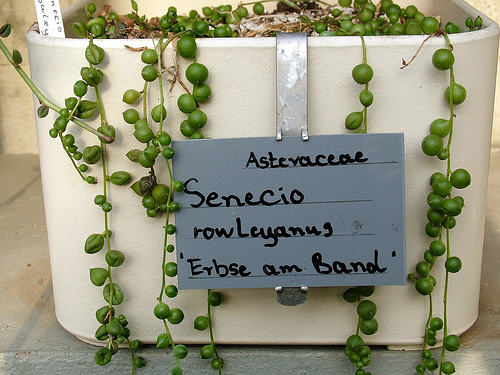 Asteraceae
Senecio
rowleyanus
'Erbse am Band'